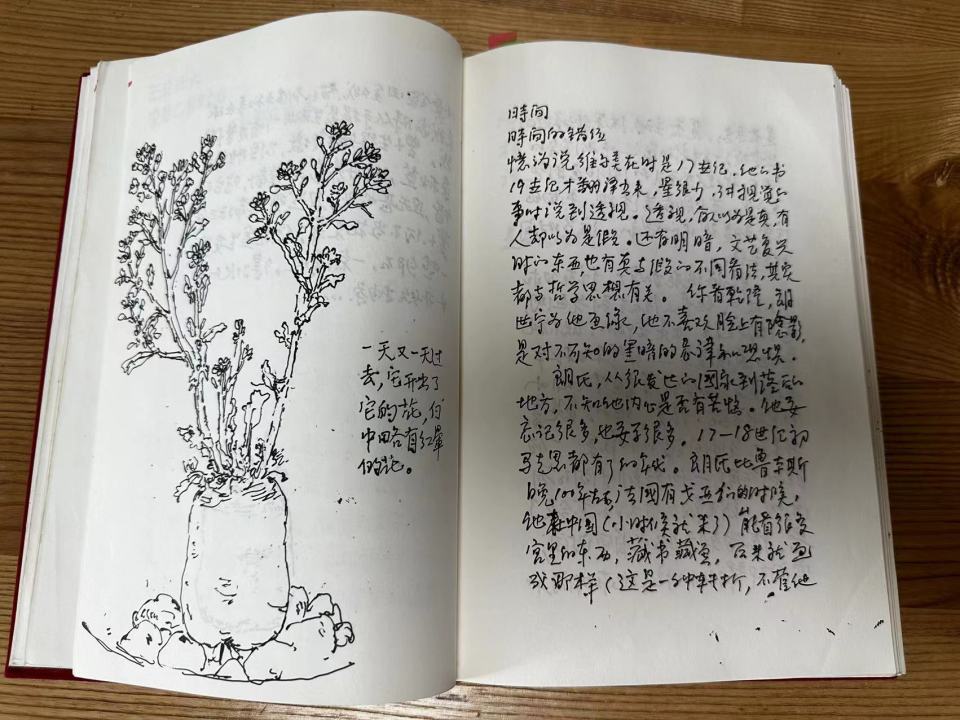 一天又一天过
去，它开出了
它的花，白
中田各有红暈
的花。
時间
時间的错位
憶说 维美在时是17世纪，他的书
19世纪才翻译出来，是谁少，讲视觉的
事时说到透视。透视，有人以为是真，有
人却以为是假。还有明暗，文艺复兴
时的东西，也有真与假的不同看法，其实
都与哲学思想有关。你看乾隆，郎
世宁为他画像，他不喜欢脸上有陰影，
是对不可知的黑暗的忌讳和恐惧。
郎氏，从很发达的国家到落后的
地方，不知他内心是否有苦恼。他要
忘记很多，也要学很多。17—18世纪初
马克思都有了
晚100年左右，法國有戈亚们的时候，
他在中国（小时候就来了）能看很多
宫里的东西，藏书藏画，后来就画
成那样（这是一种转折，不管他